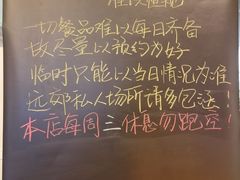 一切餐品难以每日齐备
故尽量以预约为好
临时只能以当日情况为准
远郊私人场所请多包涵!
本店每周二休息勿跑空!